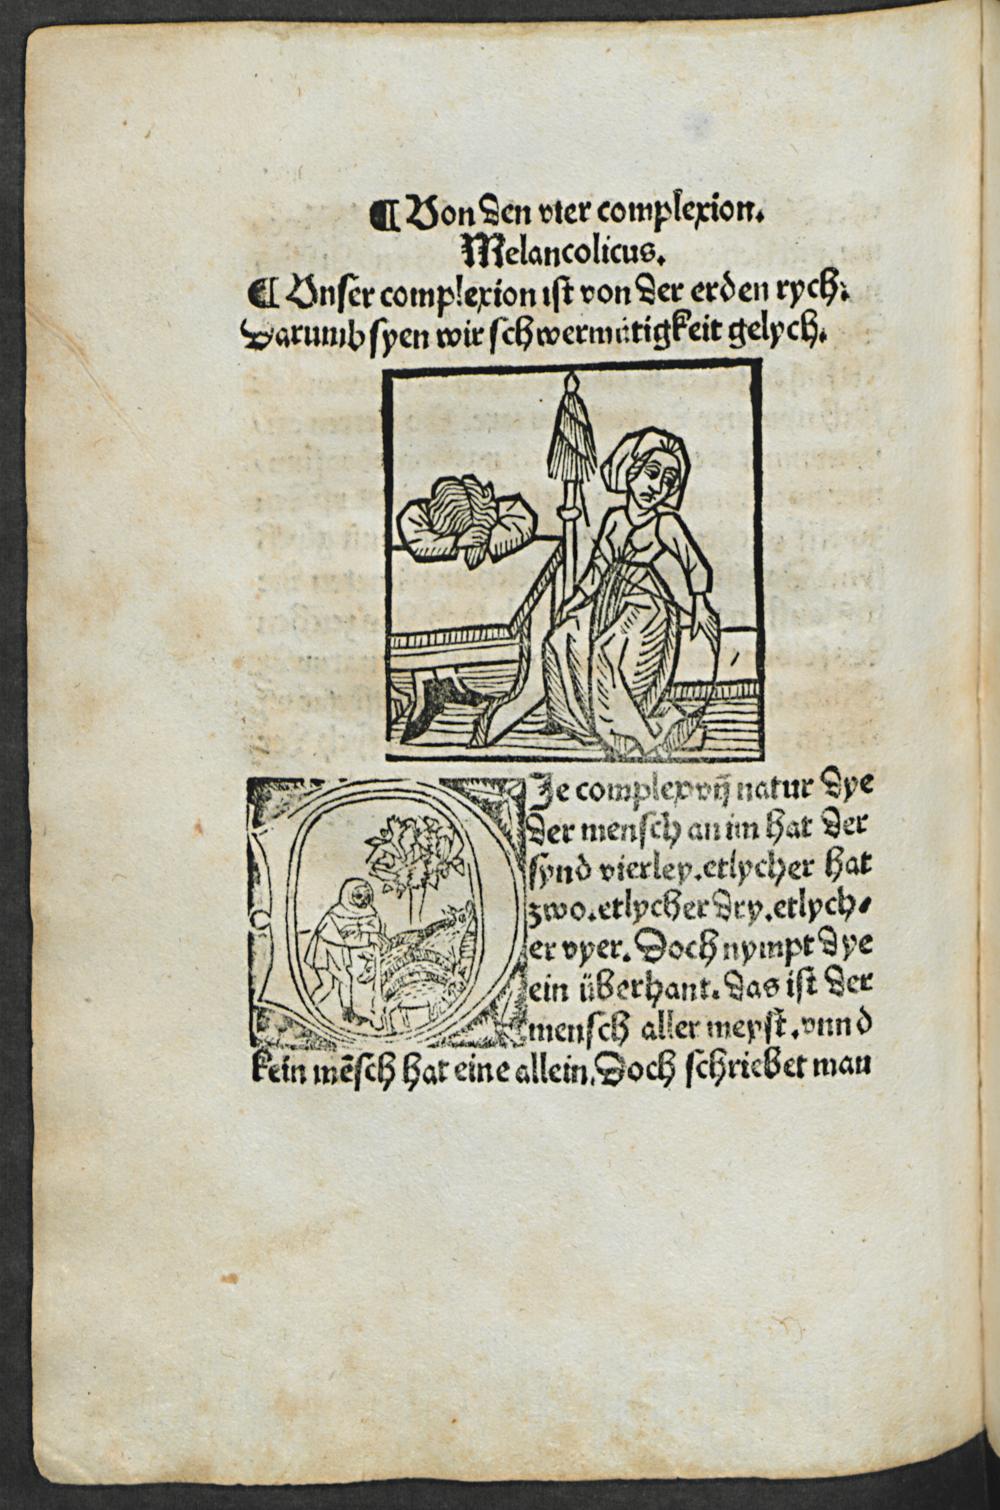 ¶ Von den vier complexion.
Melancolicus.
¶ Vnser complexion ist von der erden rych:
Darumb syen wir schwermütigkeit gelych.
DIe complex vñ natur dye
der mensch an im hat der
synd vierley. etlycher hat
zwo. etlycher dry. etlych⸗
er vyer. Doch nympt dye
ein überhant. das ist der
mensch aller meyst. vnnd
kein mēsch hat eine allein. Doch schriebet man